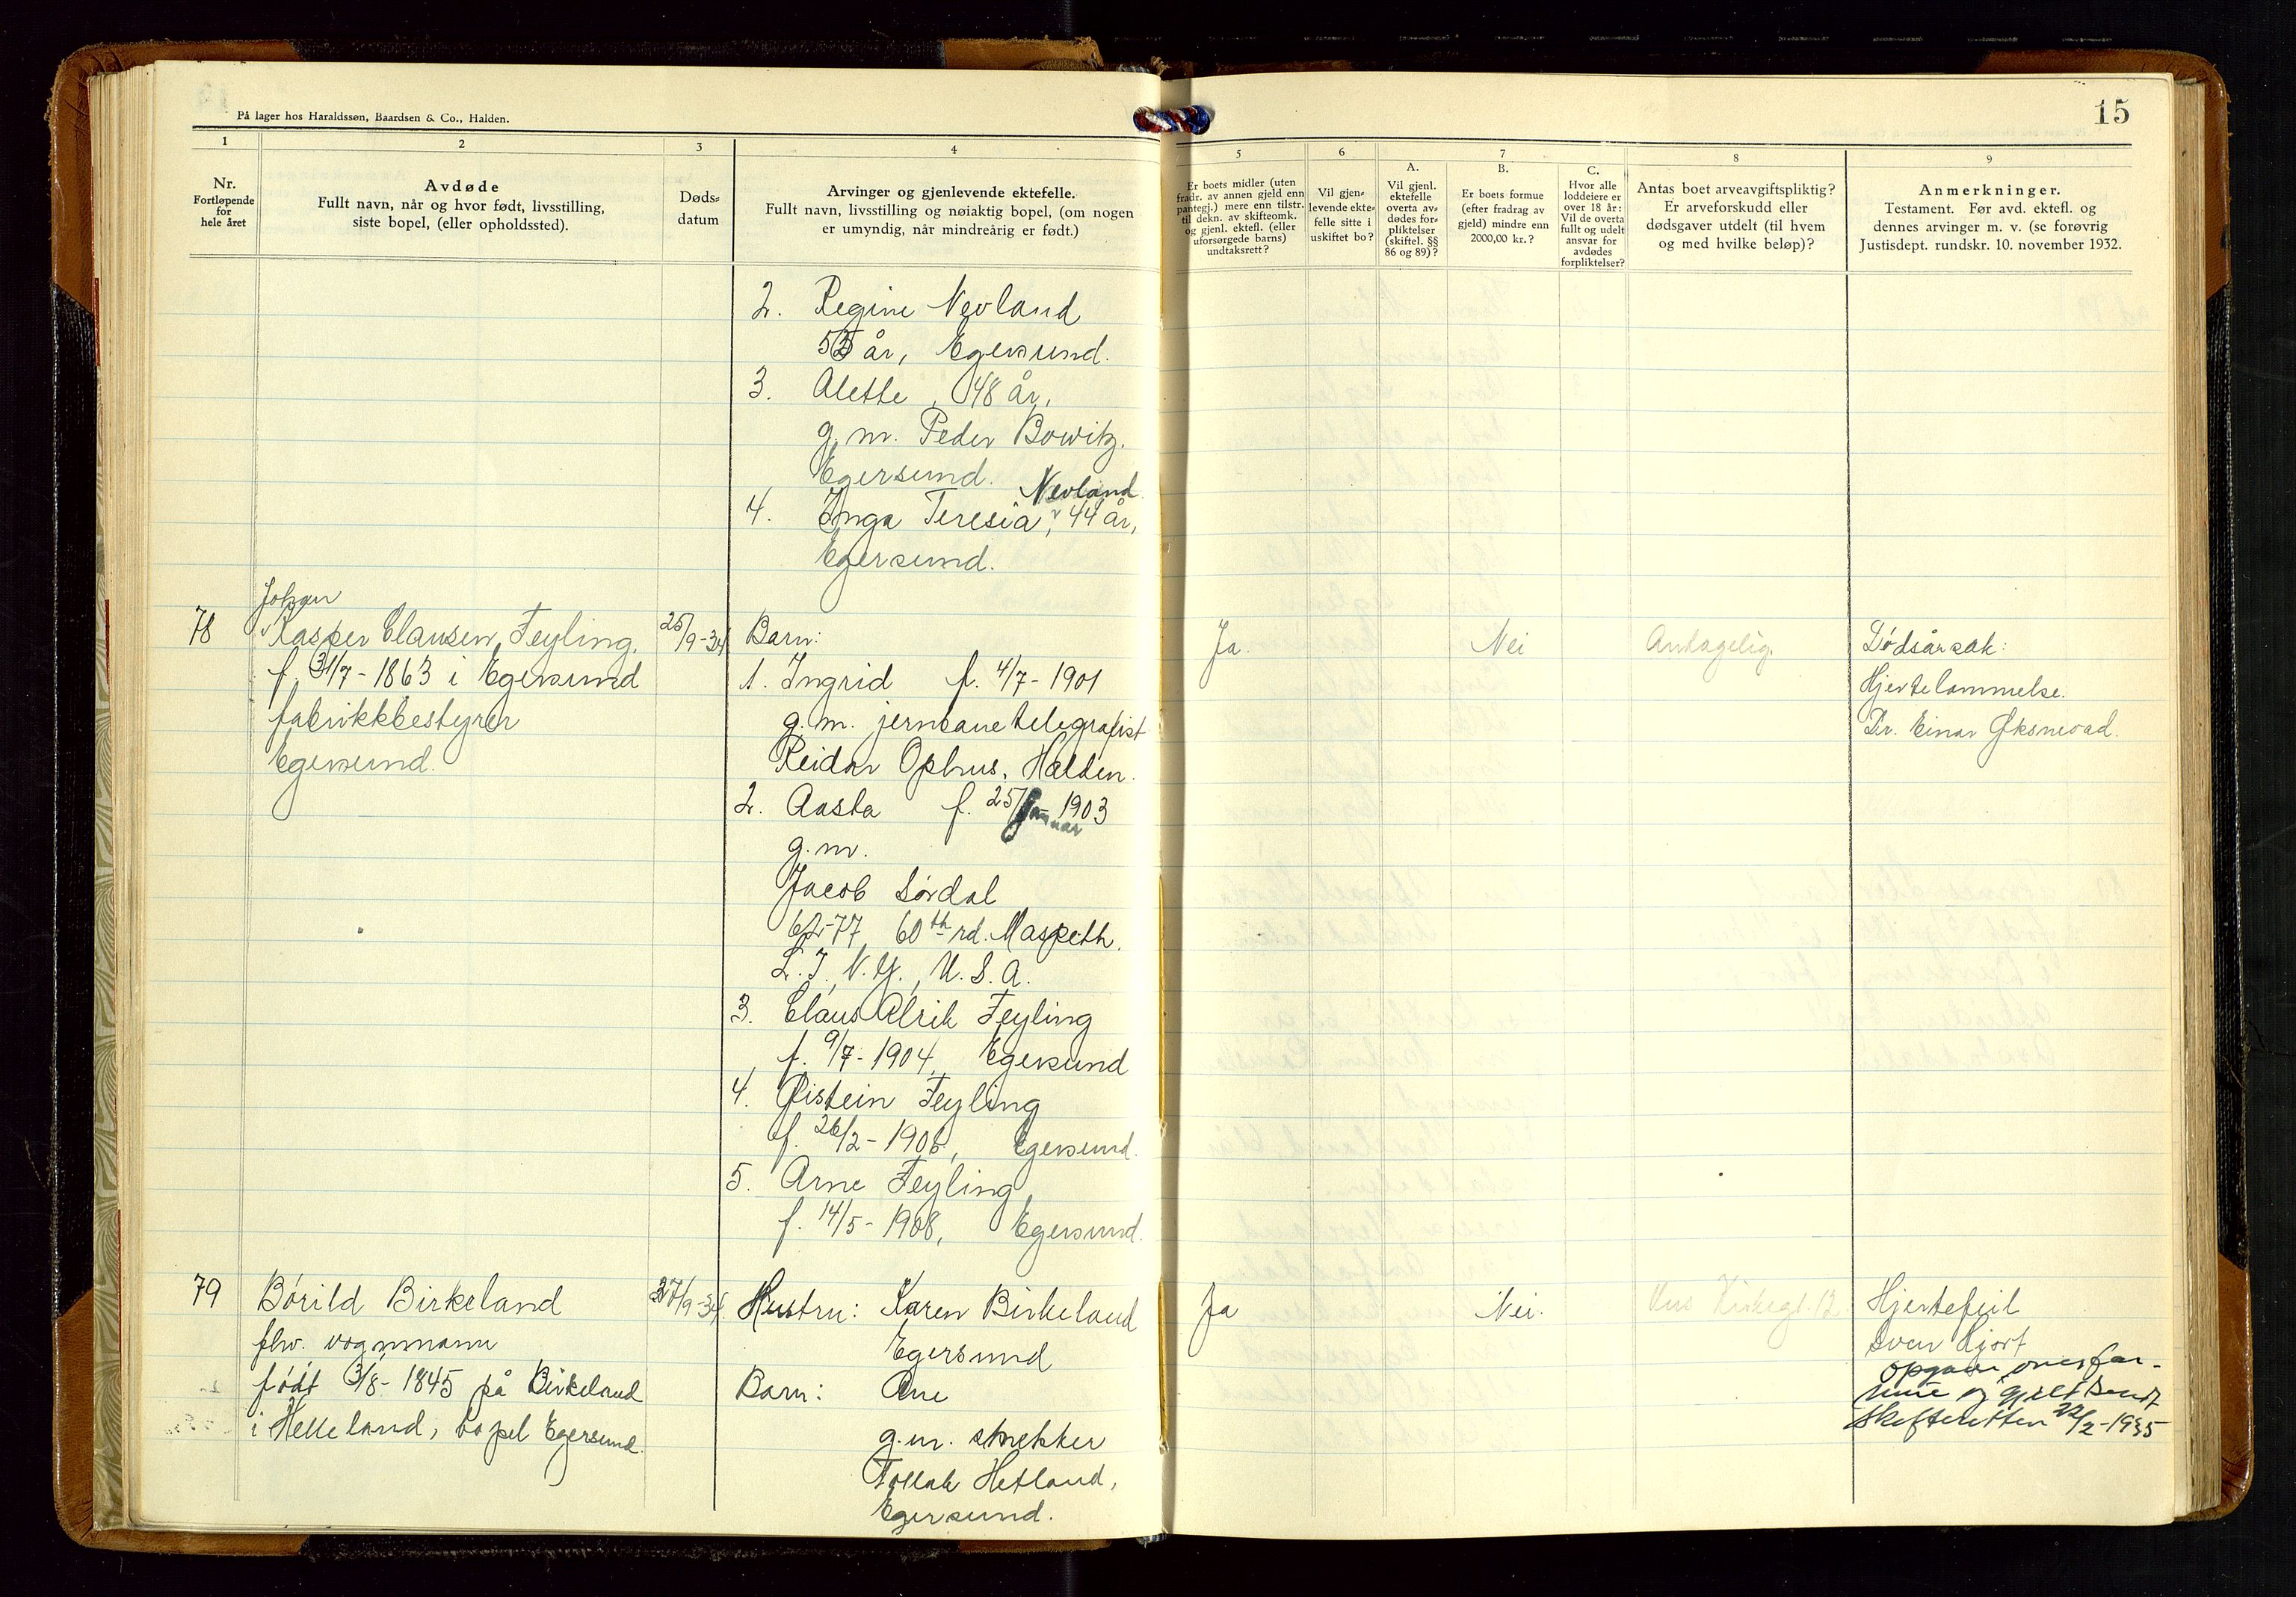 På lager hos Haraldssøn, Baardsen & Co., Halden.
15
1
2
3
4
5
6
7
8
9
Nr.
Fortløpende
for
hele året
Avdøde
Fullt navn, når og hvor født, livsstilling,
siste bopel, (eller opholdssted).
Døds-
datum
Arvinger og gjenlevende ektefelle.
Fullt navn, livsstilling og nøiaktig bopel, (om nogen
er umyndig, når mindreårig er født.)
Er boets midler (uten
fradr. av annen gjeld enn
pantegj.) mere enn tilstr.
til dekn. av skifteomk.
og gjenl. ektefl. (eller
uforsørgede barns)
undtaksrett?
Vil gjen-
levende ekte-
felle sitte i
uskiftet bo?
A.
Vil gjenl.
ektefelle
overta av-
dødes for-
pliktelser
(skiftel. §§
86 og 89)?
B.
Er boets formue
(efter fradrag av
gjeld) mindre enn
2000,00 kr.?
C.
Hvor alle
loddeiere er
over 18 år:
Vil de overta
fullt og udelt
ansvar for
avdødes
forpliktelser?
Antas boet arveavgiftspliktig?
Er arveforskudd eller
dødsgaver utdelt (til hvem
og med hvilke beløp)?
Anmerkninger.
Testament. Før avd. ektefl. og
dennes arvinger m. v. (se forøvrig
Justisdept. rundskr. 10. november 1932.
2. Regine Nevland
år, Egersund.
3. Alette, 48 år,
g. m. Peder Bowitz.
Egersund.
Nevland
4. Inga Teresia, 44 år,
Egersund.
Johan
78 Kasper Clausen Feyling, 25/9-34 Barn: Ja. Nei Antagelig. Dødsårsak:
f. 31/7-1863 i Egersund 1. Ingrid f. 4/7-1901 Hjertelammelse.
fabrikkbestyrer g.m. jernbanetelegrafist Dr. Einar Øksnevad.
Egersund. Reidar Ophus, Halden.
2. Aasta f. 25/januar 1903
g.m.
Jacob Sørdal
62-77 60th rd. Maspeth.
L.I, N.Y., U.S.A.
3. Claus Alrik Feyling
f. 9/7-1904, Egersund
4. Øistein Feyling
f. 26/2-1906, Egersund.
5. Arne Feyling,
f. 14/5-1908, Egersund.
79 Børild Birkeland 27/9-34. Hustru: Karen Birkeland Ja Nei. Hus Kirkegt. 12. Hjertefeil
fhv. vognmann Egersund Sven Hjort
født 3/8-1845 på Birkeland Barn: Ane opgave over for-
i Helleland, bopel Egersund. g.m. snekker mue og gjeld sendt
Tollak Hetland, skifteretten 22/2-1935
Egersund.